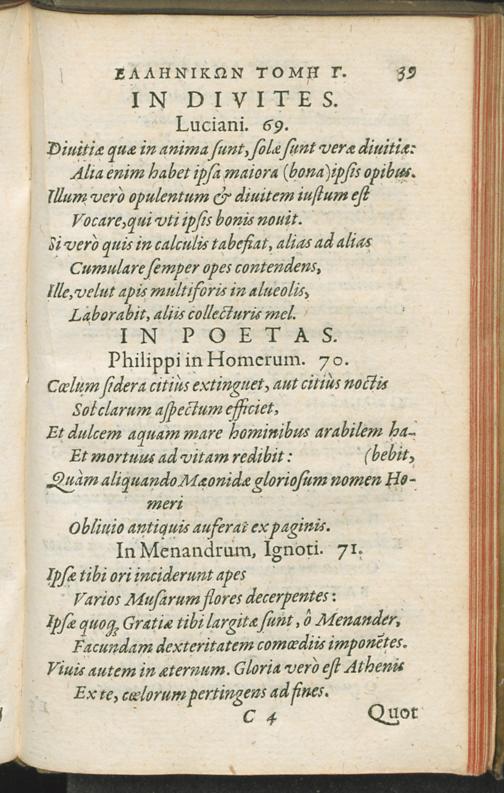 ΕΛΛΗΝΙΚΩΝ ΤΟΜΗ Γ. 39
IN DIVITES.
Luciani. 69.
Divitiæ quæ in anima ſunt, ſolæ ſunt veræ divitiæ:
Alia enim habet ipſa maiora (bona) ipſis opibus.
Illum verò opulentum & divitem iuſtum eſt
Vocare, qui vti ipſis bonis nouit.
Si verò quis in calculis tabefiat, alias ad alias
Cumulare ſemper opes contendens,
Ille, velut apis multiforis in alueolis,
Laborabit, aliis collecturis mel.
IN POETAS.
Philippi in Homerum. 70.
Cœlum ſidera citiùs extinguet, aut citiùs noctis
Sol clarum aſpectum efficiet,
Et dulcem aquam mare hominibus arabilem ha-
Et mortuus ad vitam redibit: (bebit,
Quàm aliquando Mæonidæ glorioſum nomen Ho-
meri
Obliuio antiquis auferat ex paginis.
In Menandrum, Ignoti. 71.
Ipſæ tibi ori inciderunt apes
Varios Muſarum flores decerpentes:
Ipſæ quoq; Gratiæ tibi largitæ ſunt, ô Menander,
Facundam dexteritatem comœdiis imponẽtes.
Viuis autem in æternum. Gloria verò eſt Athenis
Ex te, cœlorum pertingens ad fines.
C 4 Quot